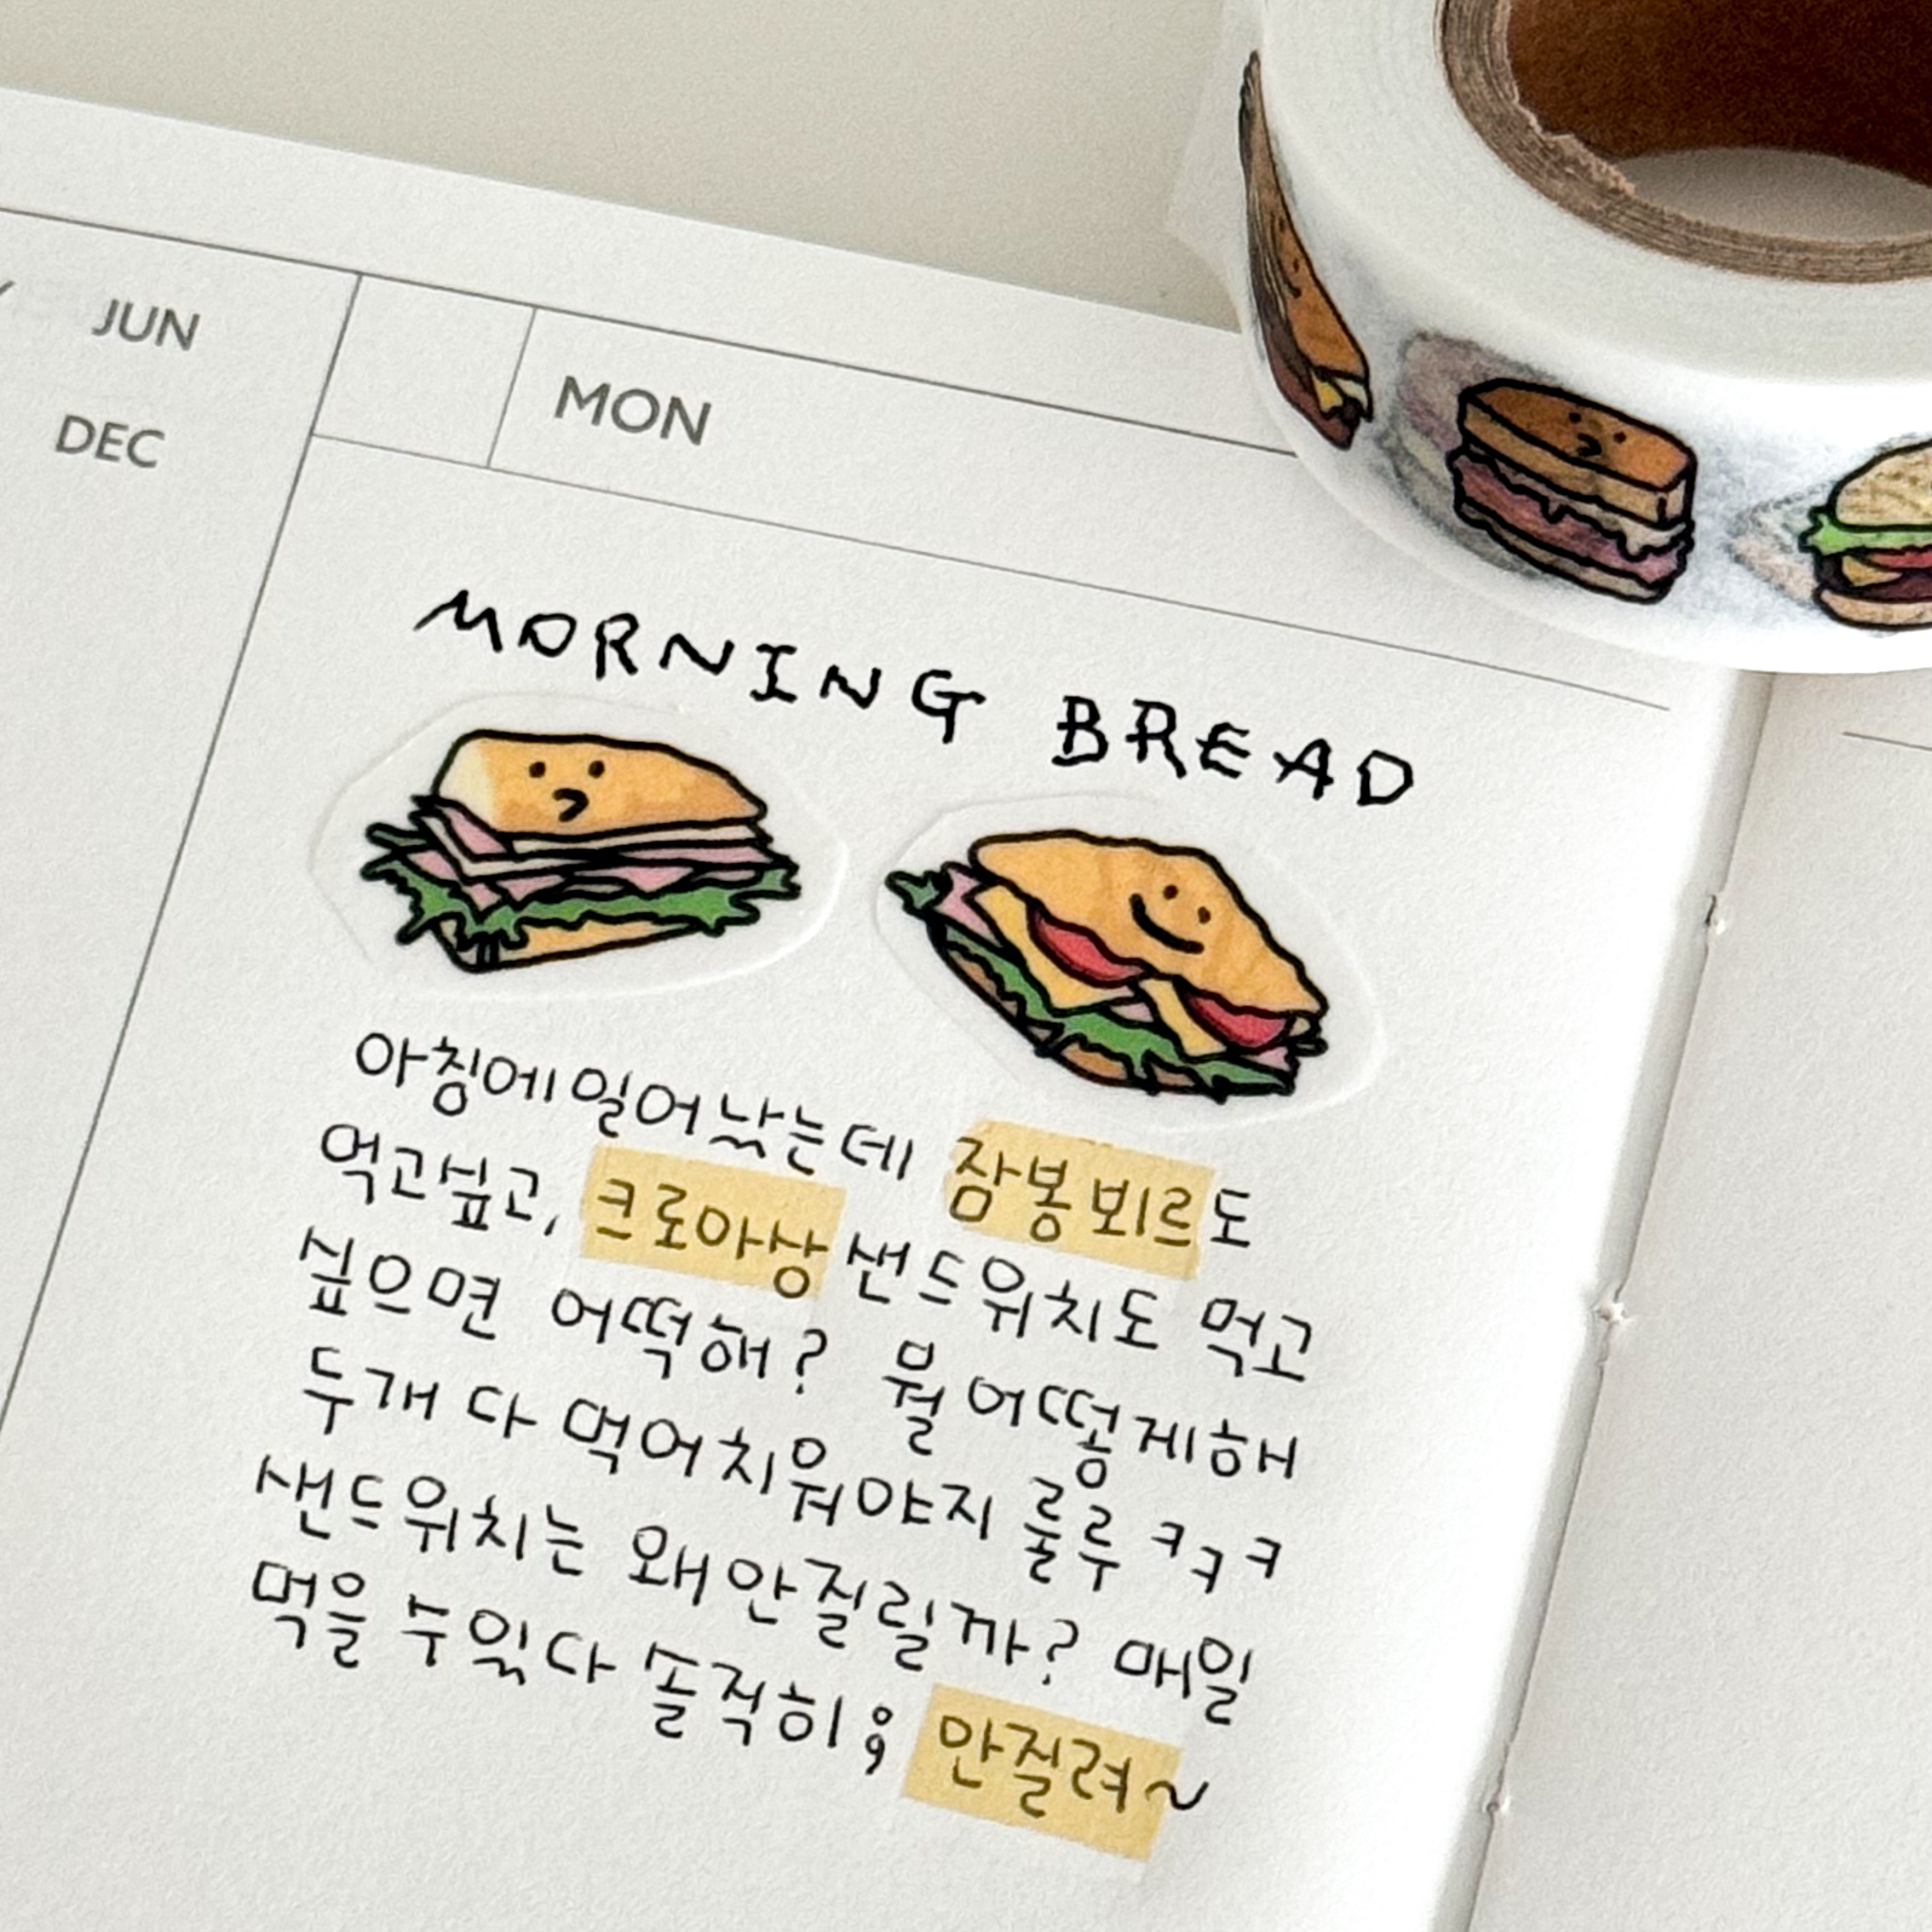 JUN
DEC
MON
MORNING BREAD
아침에일어났는데 잠봉뵈르도
먹고싶고, 크로아상샌드위치도 먹고
싶으면 어떡해? 뭘 어떻게해
두개 다 먹어치워야지 룰루 ㅋㅋㅋ
샌드위치는 왜안질릴까? 매일
먹을 수있다 솔직히; 안질려~